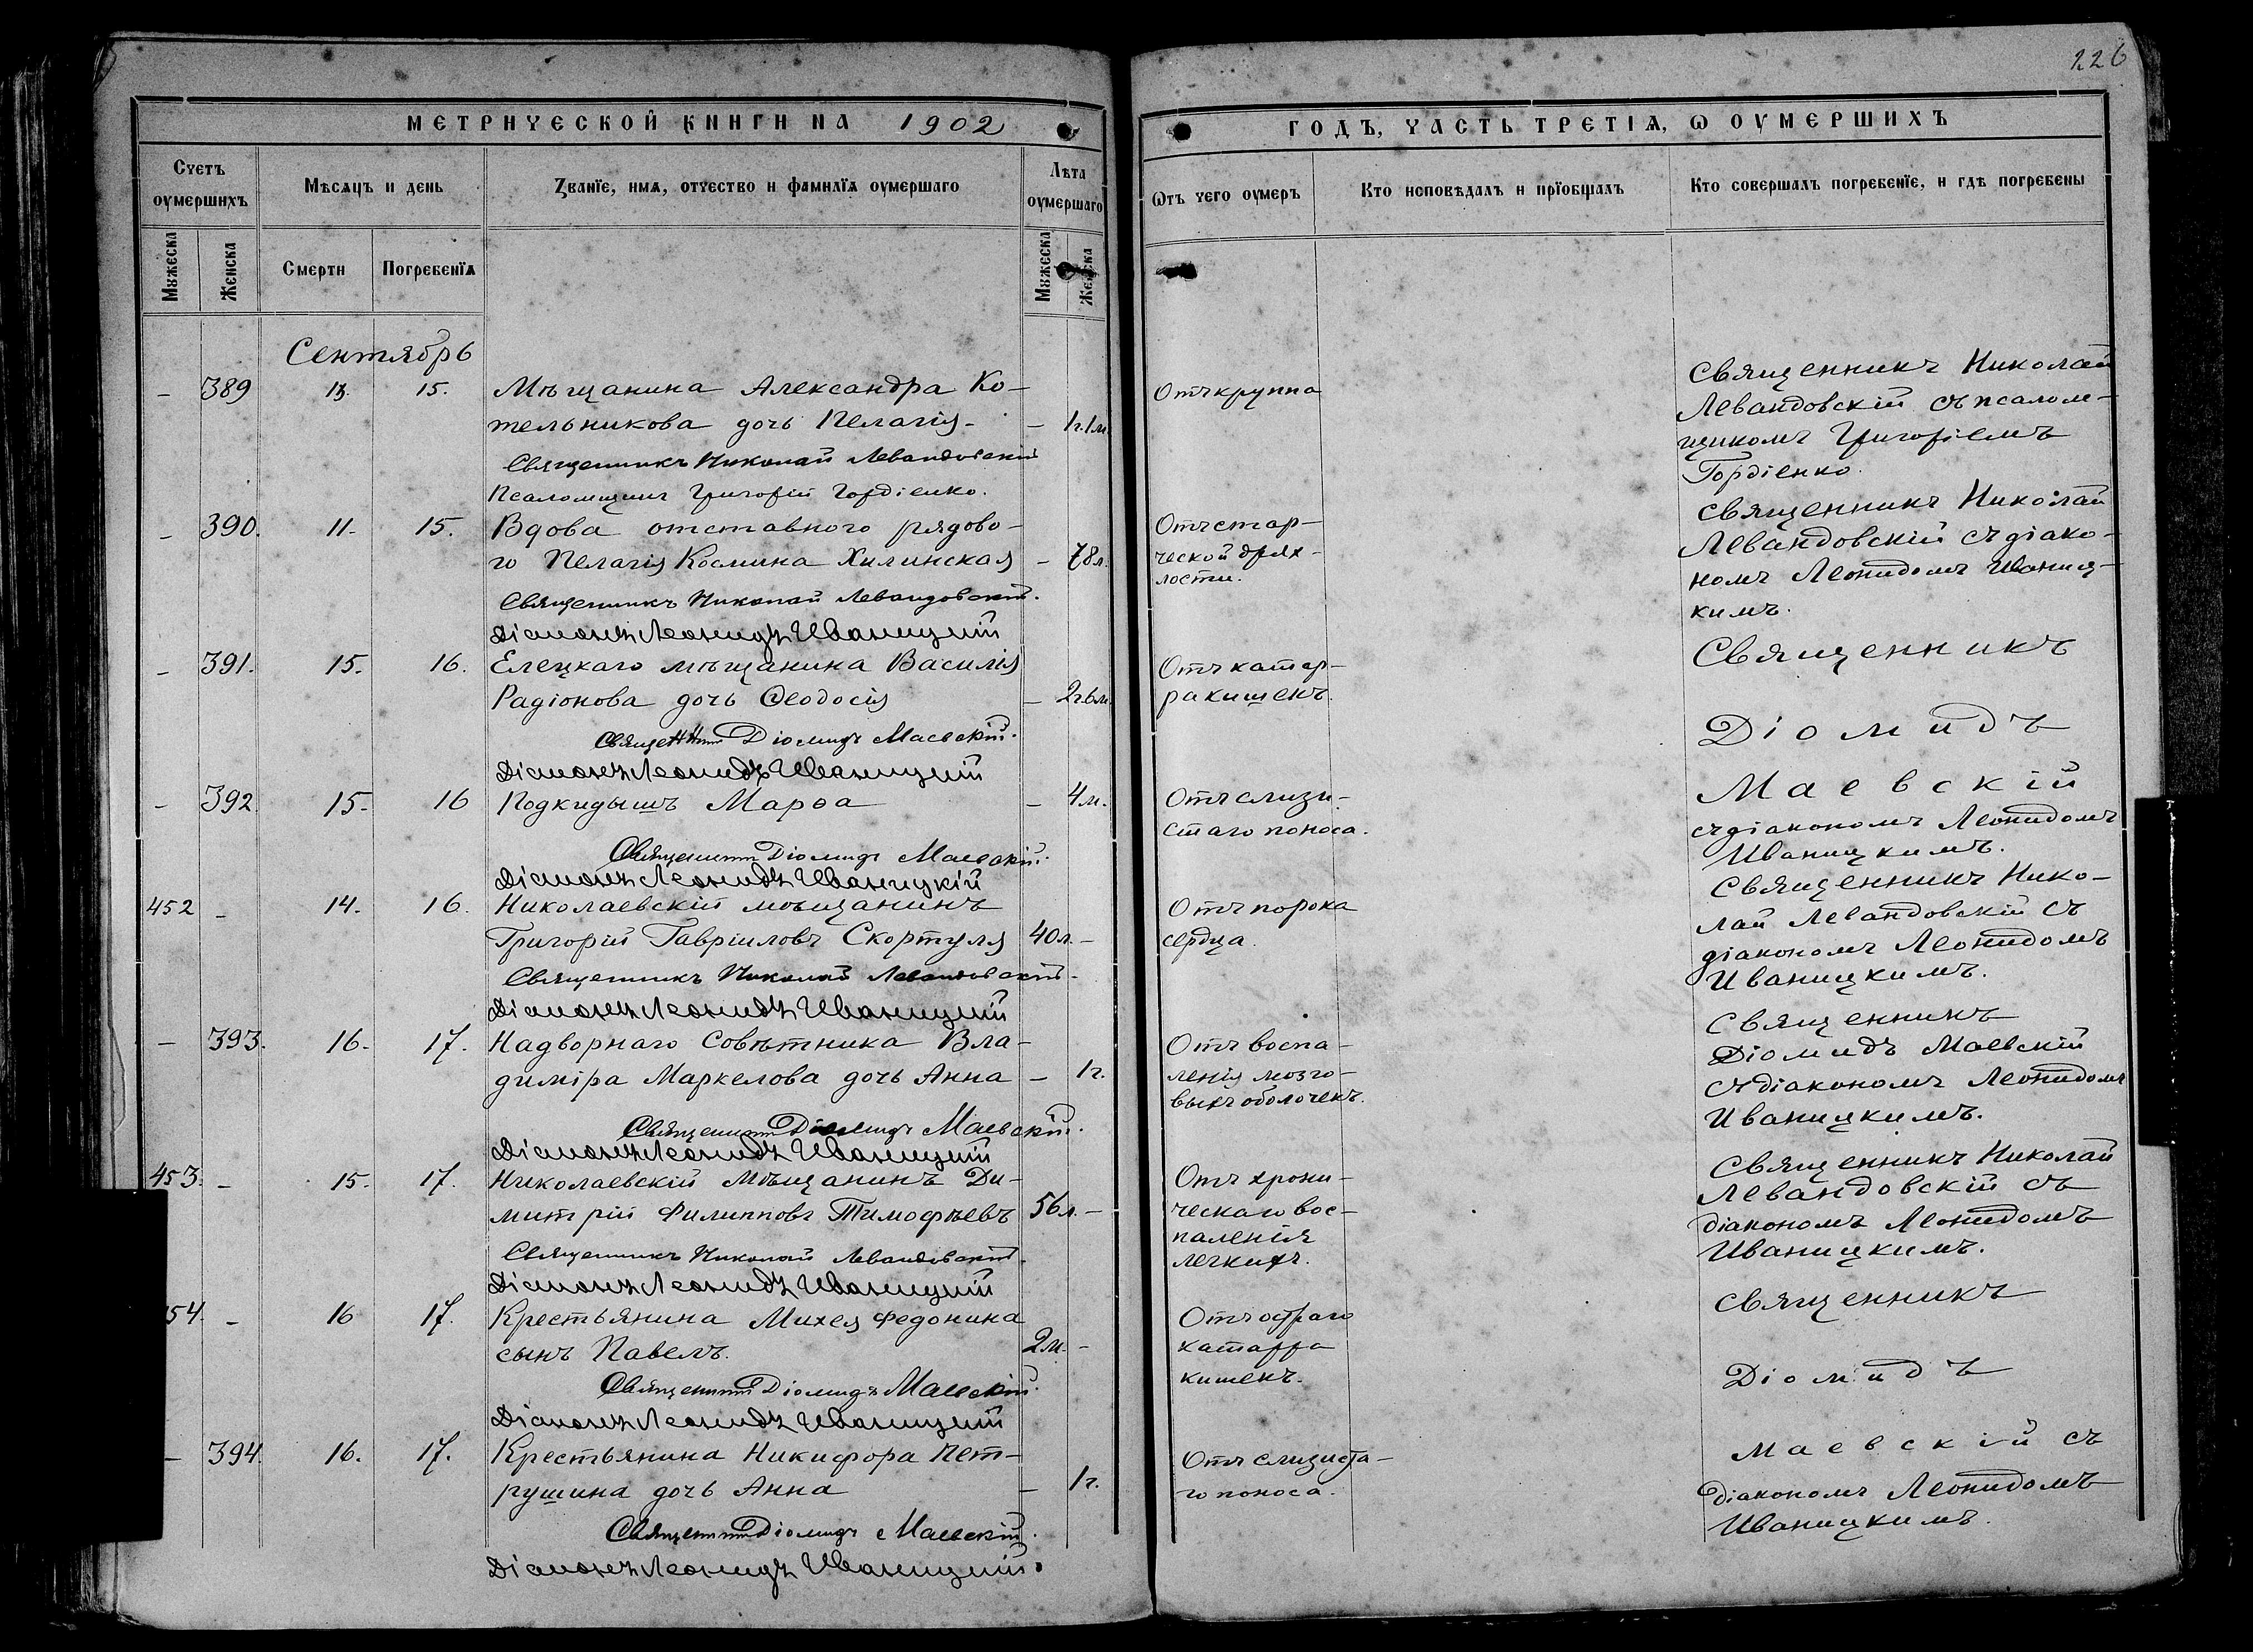 226
МЕТРИЧЕСКОЙ КНИГИ НА 1902
ГОДЪ, ЧАСТЬ ТРЕТІѦ, Ѡ ОУМЕРШИХЪ
Счетъ оумершихъ
Мѣсѧцъ и день
Званїе, имѧ, отчество и фамилїѧ оумершаго
Лѣта оумершаго
Ѿтъ чего оумеръ
Кто исповѣдалъ и прїобщалъ
Кто совершалъ погребенїе, и гдѣ погребены
Мужеска
Женска
Смерти
Погребенїѧ
Мужеска
Женска
Сентябрь
– 389 13. 15. Мѣщанина Александра Ко-
тельникова дочь Пелагія – – 1г.1м.
Священникъ Николай Левандовскій
Псаломщикъ Григорій Гордіенко.
Отъ круппа
Священникъ Николай
Левандовскій съ псалом-
щикомъ Григоріемъ
Гордіенко.
– 390. 11. 15. Вдова отставного рядово-
го Пелагія Космина Хилинская – 78л.
Священникъ Николай Левандовскій.
Діаконъ Леонидъ Иваницкій
Отъ стар-
ческой дрях-
лости.
Священникъ Николай
Левандовскій съ діако-
номъ Леонидомъ Иваниц-
кимъ.
– 391. 15. 16. Елецкаго мѣщанина Василія
Радіонова дочь Ѳеодосія – 2г.6м.
Священникъ Діомидъ Маевскій.
Діаконъ Леонидъ Иваницкій
Отъ катар-
ра кишекъ.
Священникъ
Діомидъ
Маевскій
съ діакономъ Леонидомъ
Иваницкимъ.
– 392. 15. 16 Подкидышъ Марѳа – 4м.
Священникъ Діомидъ Маевскій.
Діаконъ Леонидъ Иваницкій
Отъ слизи-
стаго поноса.
452 – 14. 16. Николаевскій мѣщанинъ
Григорій Гавріиловъ Скортуля 40л. –
Священникъ Николай Левандовскій.
Діаконъ Леонидъ Иваницкій
Отъ порока
сердца.
Священникъ Нико-
лай Левандовскій съ
діакономъ Леонидомъ
Иваницкимъ.
– 393. 16. 17. Надворнаго Совѣтника Вла-
диміра Маркелова дочь Анна – 1г.
Священникъ Діомидъ Маевскій.
Діаконъ Леонидъ Иваницкій
Отъ воспа-
ленія мозго-
выхъ оболочекъ.
Священникъ
Діомидъ Маевскій
съ діакономъ Леонидомъ
Иваницкимъ.
453. – 15. 17. Николаевскій Мѣщанинъ Ди-
митрій Филипповъ Тимофѣевъ 56л. –
Священникъ Николай Левандовскій.
Діаконъ Леонидъ Иваницкій
Отъ хрони-
ческаго вос-
паленія
легкихъ.
Священникъ Николай
Левандовскій съ
діакономъ Леонидомъ
Иваницкимъ.
54. – 16 17. Крестьянина Михея Федонина
сынъ Павелъ. 2м. –
Священникъ Діомидъ Маевскій.
Діаконъ Леонидъ Иваницкій
Отъ остраго
катарра
кишекъ.
Священникъ
Діомидъ
Маевскій съ
діакономъ Леонидомъ
Иваницкимъ.
– 394. 16. 17. Крестьянина Никифора Пет-
рушина дочь Анна – 1г.
Священникъ Діомидъ Маевскій.
Діаконъ Леонидъ Иваницкій.
Отъ слизиста-
го поноса.